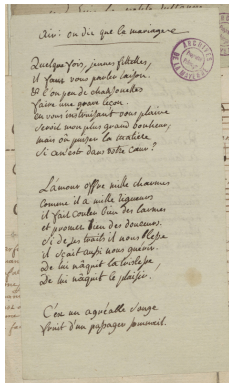 Air: on dit que la mariage
Quelque fois, jeunes fillettes,
il faut vous parler raison.
Et l'on peu de chansonettes
faire une grave leçon.
En vous instruisant vous plaire
seroit mon plus grand bonheur;
mais où puiser la matiere
si ce n'est dans votre cœur?
L'amour offre mille charmes
comme il a mille rigueurs
il fait couler bien des larmes
et promet bien des douceurs.
Si de ses traits il nous blesse
il sçait aussi nous guerir.
de lui nâquit la tristesse
de lui nâquit le plaisir!
C'est un agréable songe
fruit d'un passager sommeil.
ARCHIVES